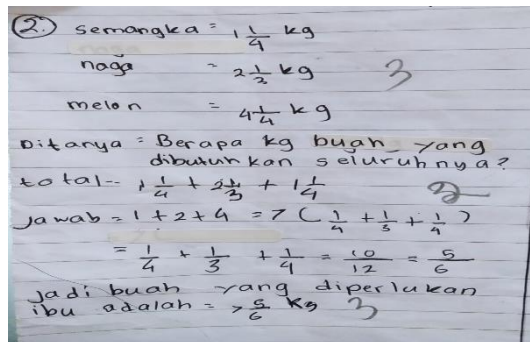 2. semangka = 1 1/4 kg
naga = 2 1/3 kg 3
melon = 4 1/4 kg
Ditanya = Berapa kg buah yang
dibutuhkan seluruhnya?
total = 1 1/4 + 2 1/3 + 1 1/4 2
Jawab = 1 + 2 + 4 = 7 ( 1/4 + 1/3 + 1/4 )
= 1/4 + 1/3 + 1/4 = 10/12 = 5/6
Jadi buah yang diperlukan
ibu adalah = 7 5/6 Kg 3